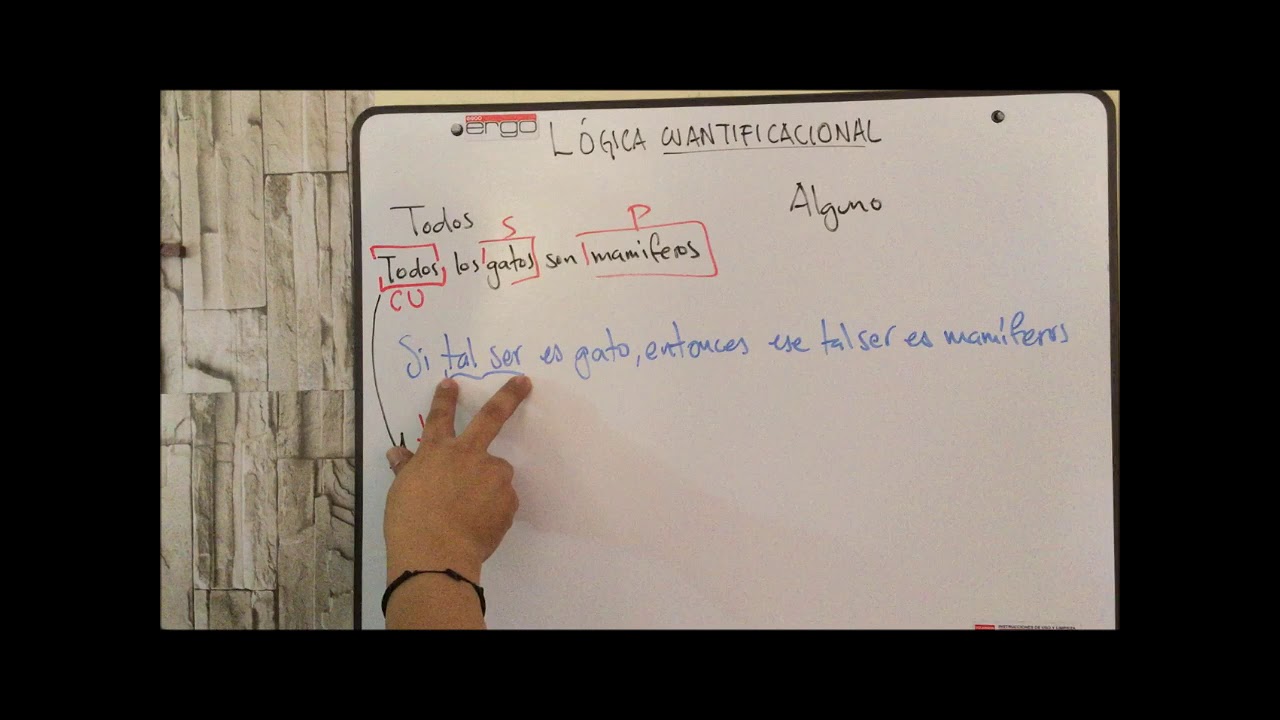 ergo
LÓGICA CUANTIFICACIONAL
Todos
Alguno
S
P
Todos los gatos son mamiferos
CU
Si tal ser es gato, entonces ese tal ser es mamíferos
INSTRUCCIONES DE USO Y LIMPIEZA